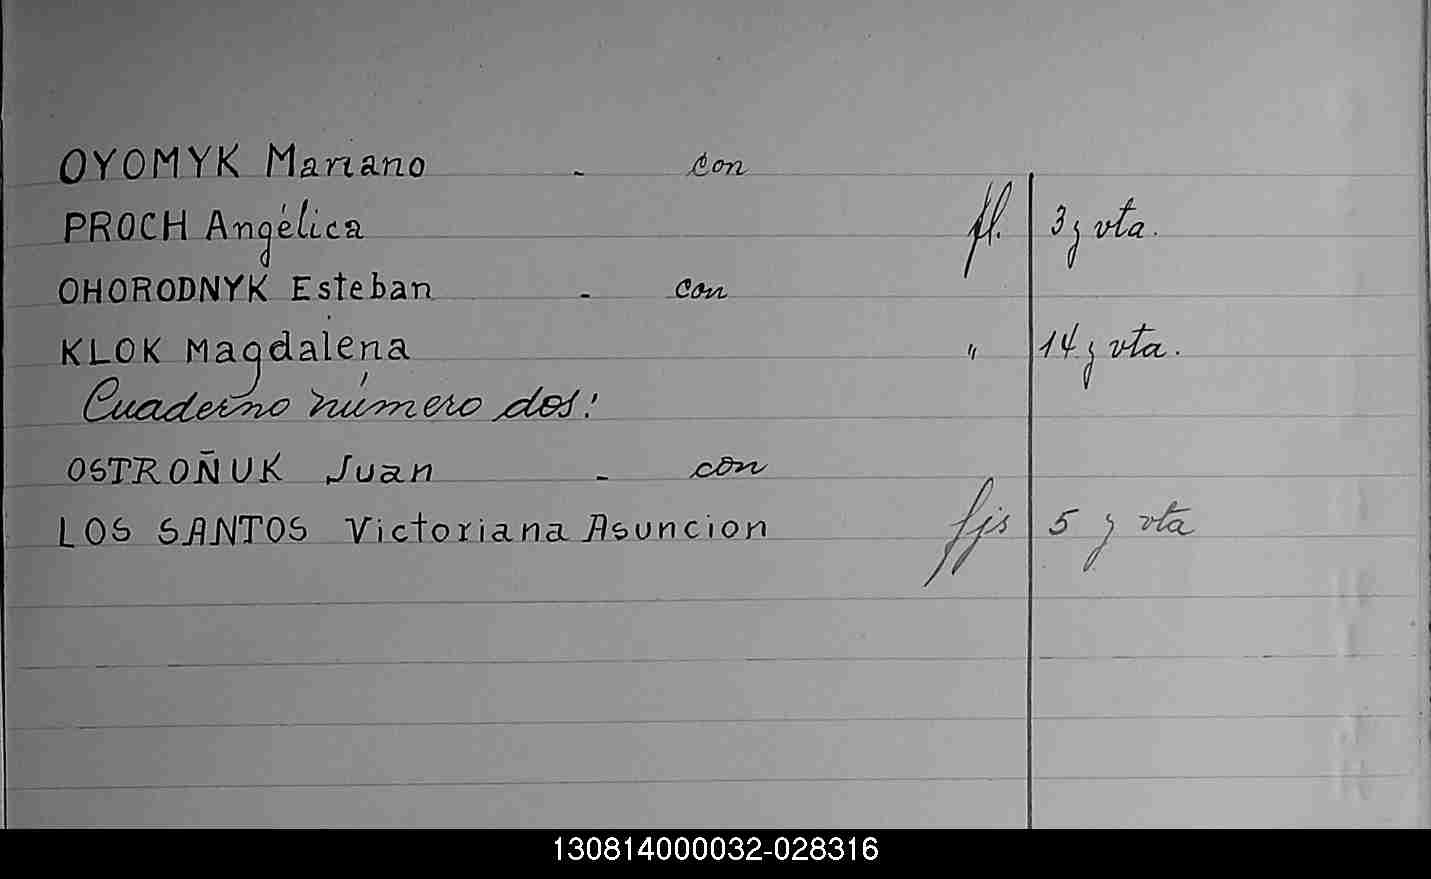 OYOMYK Mariano - con
PROCH Angélica fl. 3 y vta.
OHORODNYK Esteban - con
KLOK Magdalena " 14 y vta.
Cuaderno número dos:
OSTROÑUK Juan - con
LOS SANTOS Victoriana Asuncion fjs 5 y vta
130814000032-028316